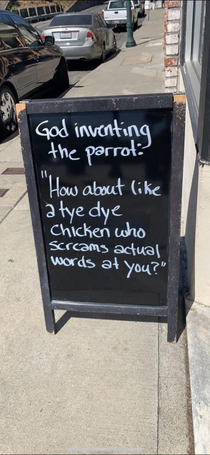 God inventing
the parrot:
"How about like
a tye dye
chicken who
screams actual
words at you?"